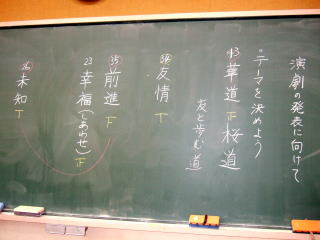 演劇の発表に向けて
"テーマを決めよう
43 華道 正 桜道
友と歩む道
38 友情 T
35 前進 下
23 幸福(しあわせ) 正
36 未知 T